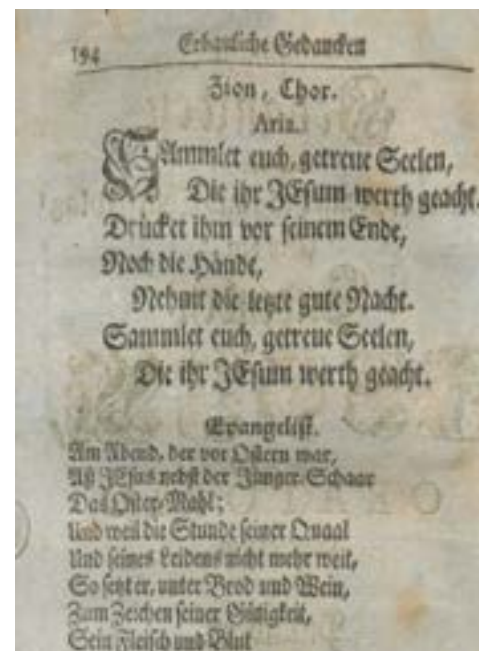 194 Erbauliche Gedancken
Zion, Chor.
Aria.
SAmmlet euch, getreue Seelen,
Die ihr JEsum werth geacht.
Drücket ihm vor seinem Ende,
Noch die Hände,
Nehmt die letzte gute Nacht.
Sammlet euch, getreue Seelen,
Die ihr JEsum werth geacht.
Evangelist.
Am Abend, der vor Ostern war,
Aß JEsus nebst der Jünger-Schaar
Das Oster-Mahl;
Und weil die Stunde seiner Quaal
Und seines Leidens nicht mehr weit,
So setzt er, unter Brod und Wein,
Zum Zeichen seiner Gütigkeit,
Sein Fleisch und Blut